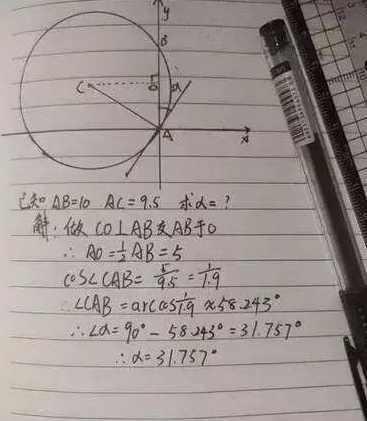 y
B
C
O
α
A
x
已知 AB=10 AC=9.5 求α=?
解:做 CO⊥AB交AB于O
∴ AO=½AB=5
cos∠CAB=5/9.5=1/1.9
∠CAB=arccos1/1.9≈58.243°
∴∠α=90°-58.243°=31.757°
∴α=31.757°